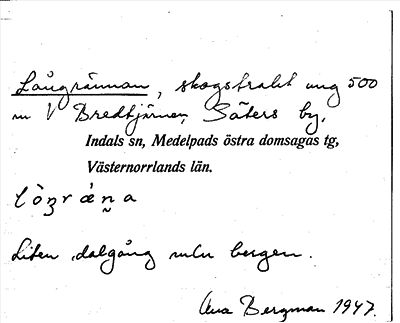 Långrännan, skogstrakt ung 500
m V Bredtjärnen, Säters by,
Indals sn, Medelpads östra domsagas tg,
Västernorrlands län.
Liten dalgång mln bergen.
Ana Bergman 1947.